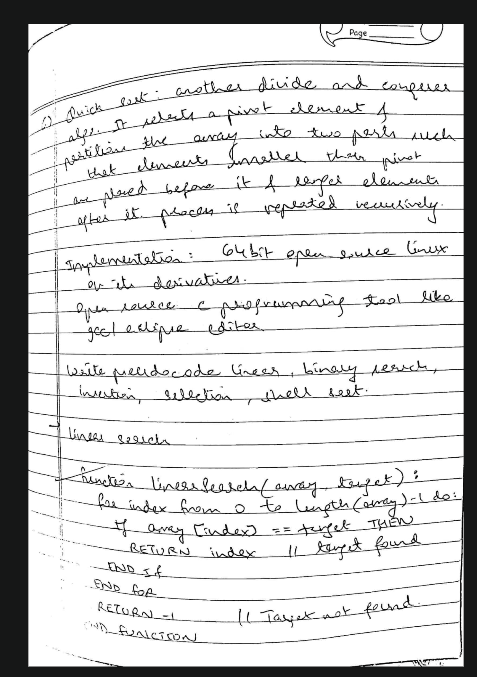 Page
Quick sort: another divide and conquer
algo. It selects a pivot element &
partitions the array into two parts such
that elements smaller than pivot
are placed before it & larger elements
after it. process is repeated recursively.
Implementation: 64 bit open source linux
or its derivatives.
Open source c programming tool like
gcc/ eclipse editor
Write pseudocode linear, binary search,
insertion, selection, shell sort.
linear search
Function linearSearch(array, target):
for index from 0 to length(array)-1 do:
If array [index] == target THEN
RETURN index // target found
END If
END FOR
RETURN -1 // Target not found.
END FUNCTION